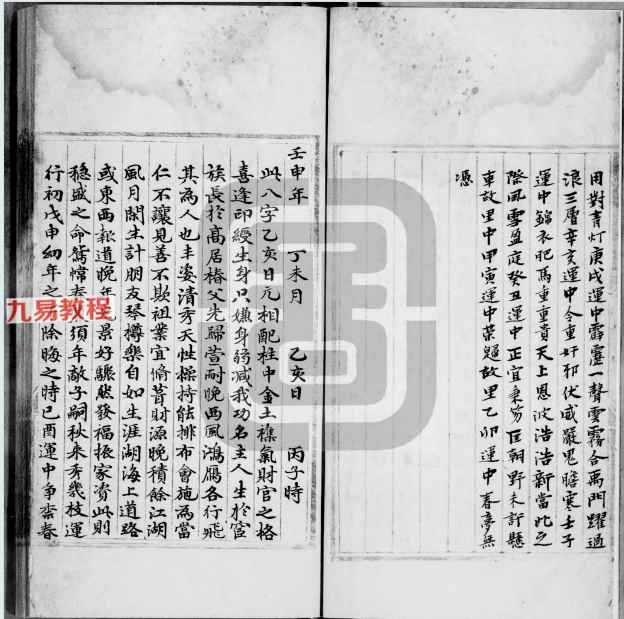 用對青灯庚戌運中霹靂一聲雲霧合禹門躍過
浪三層辛亥運中令重奸邪伏威嚴鬼膽寒壬子
運中錦衣肥馬重重貴天上恩波浩浩新當此之
際風雪盈庭癸丑運中正宜秉笏匡朝野未許懸
車故里中甲寅運中榮歸故里乙卯運中春夢無
憑
壬申年 丁未月 乙亥日 丙子時
此八字乙亥日元相配柱中金土襍氣財官之格
喜逢印綬生身只嫌身弱減我功名主人生於宦
族長於高居椿父先歸萱耐晚西風鴻鴈各行飛
其為人也丰姿清秀天性操持能排布會施為當
仁不讓見善不欺祖業宜脩葺財源晚積餘江湖
風月閑生計朋友琴樽樂自如生涯湖海上道路
或東西報道晚年景好驟然發福振家資此則
穩盛之命鴛幃春須年敵子嗣秋來秀幾枝運
行初戊申幼年之除晦之時己酉運中爭奈春
九易教程